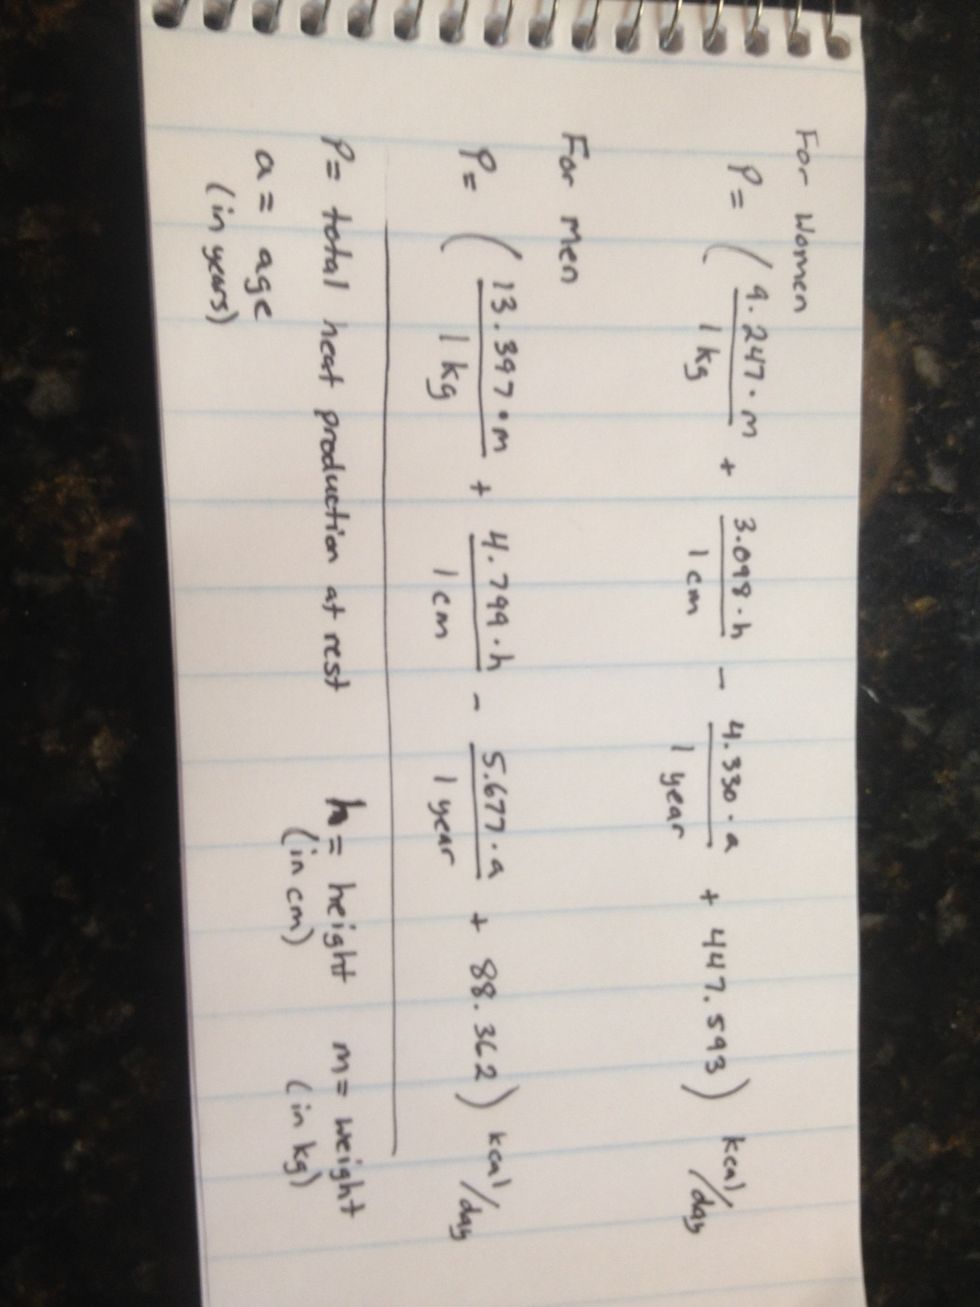 For Women
P = ( 9.247 · m / 1 kg + 3.098 · h / 1 cm − 4.330 · a / 1 year + 447.593 ) kcal/day
For Men
P = ( 13.397 · m / 1 kg + 4.799 · h / 1 cm − 5.677 · a / 1 year + 88.362 ) kcal/day
P = total heat production at rest h = height m = weight
(in cm) (in kg)
a = age
(in years)